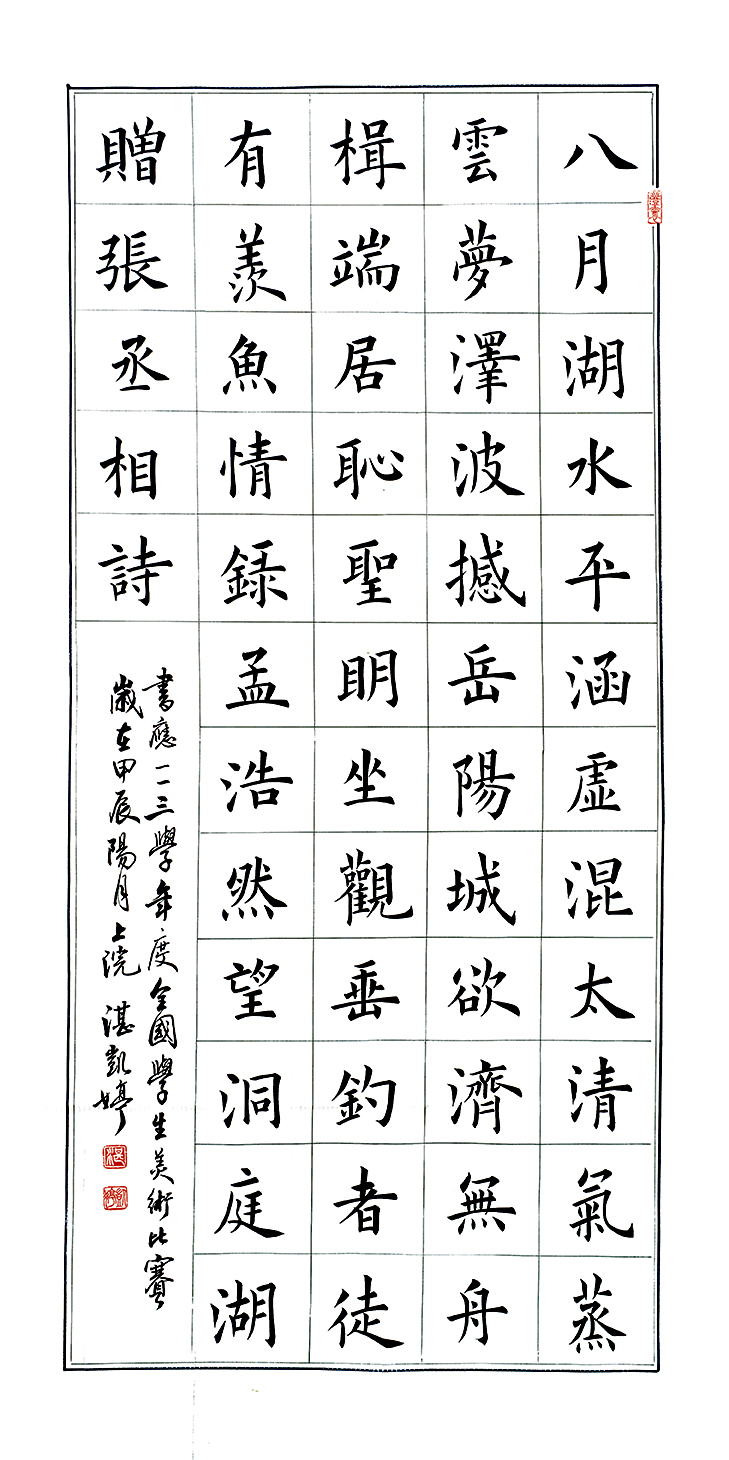 八月湖水平涵虛混太清氣蒸
雲夢澤波撼岳陽城欲濟無舟
楫端居恥聖明坐觀垂釣者徒
有羨魚情錄孟浩然望洞庭湖
贈張丞相詩
書應一一三學年度全國學生美術比賽
歲在甲辰陽月上浣 湛凱婷